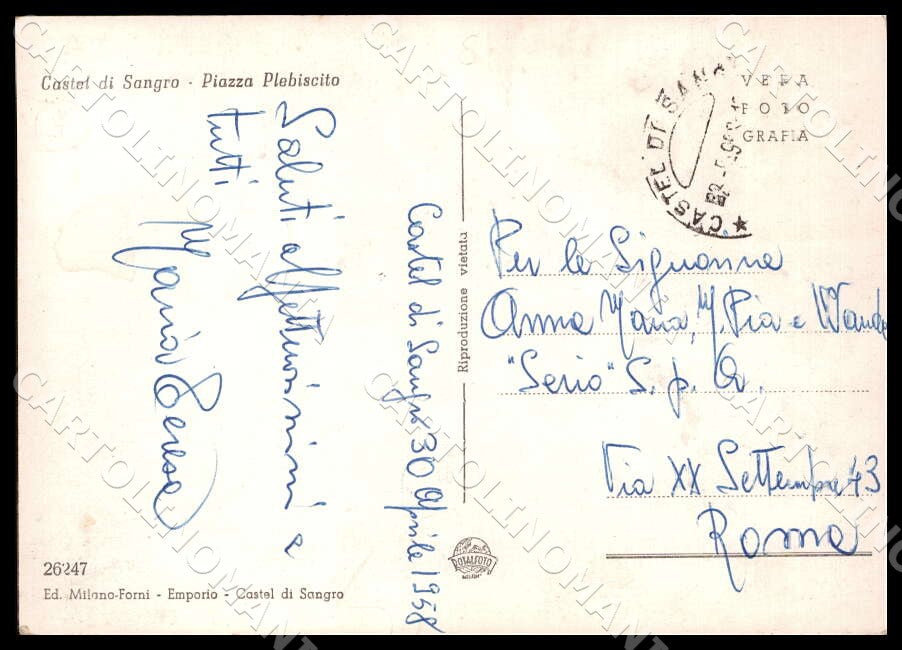 Castel di Sangro - Piazza Plebiscito
VERA
FOTO
GRAFIA
CASTEL DI SANG
Castel di Sangro 30 Aprile 1958
Saluti affettuosissimi a
tutti
Maria Teresa
Riproduzione vietata
Per le Signorine
Anna Maria, M. Pia e Wanda
"Serio" S. p. A.
Via XX Settembre 43
Roma
ROTALFOTO
MILANO
26247
Ed. Milano-Forni - Emporio - Castel di Sangro
CARTOLINOMANTI